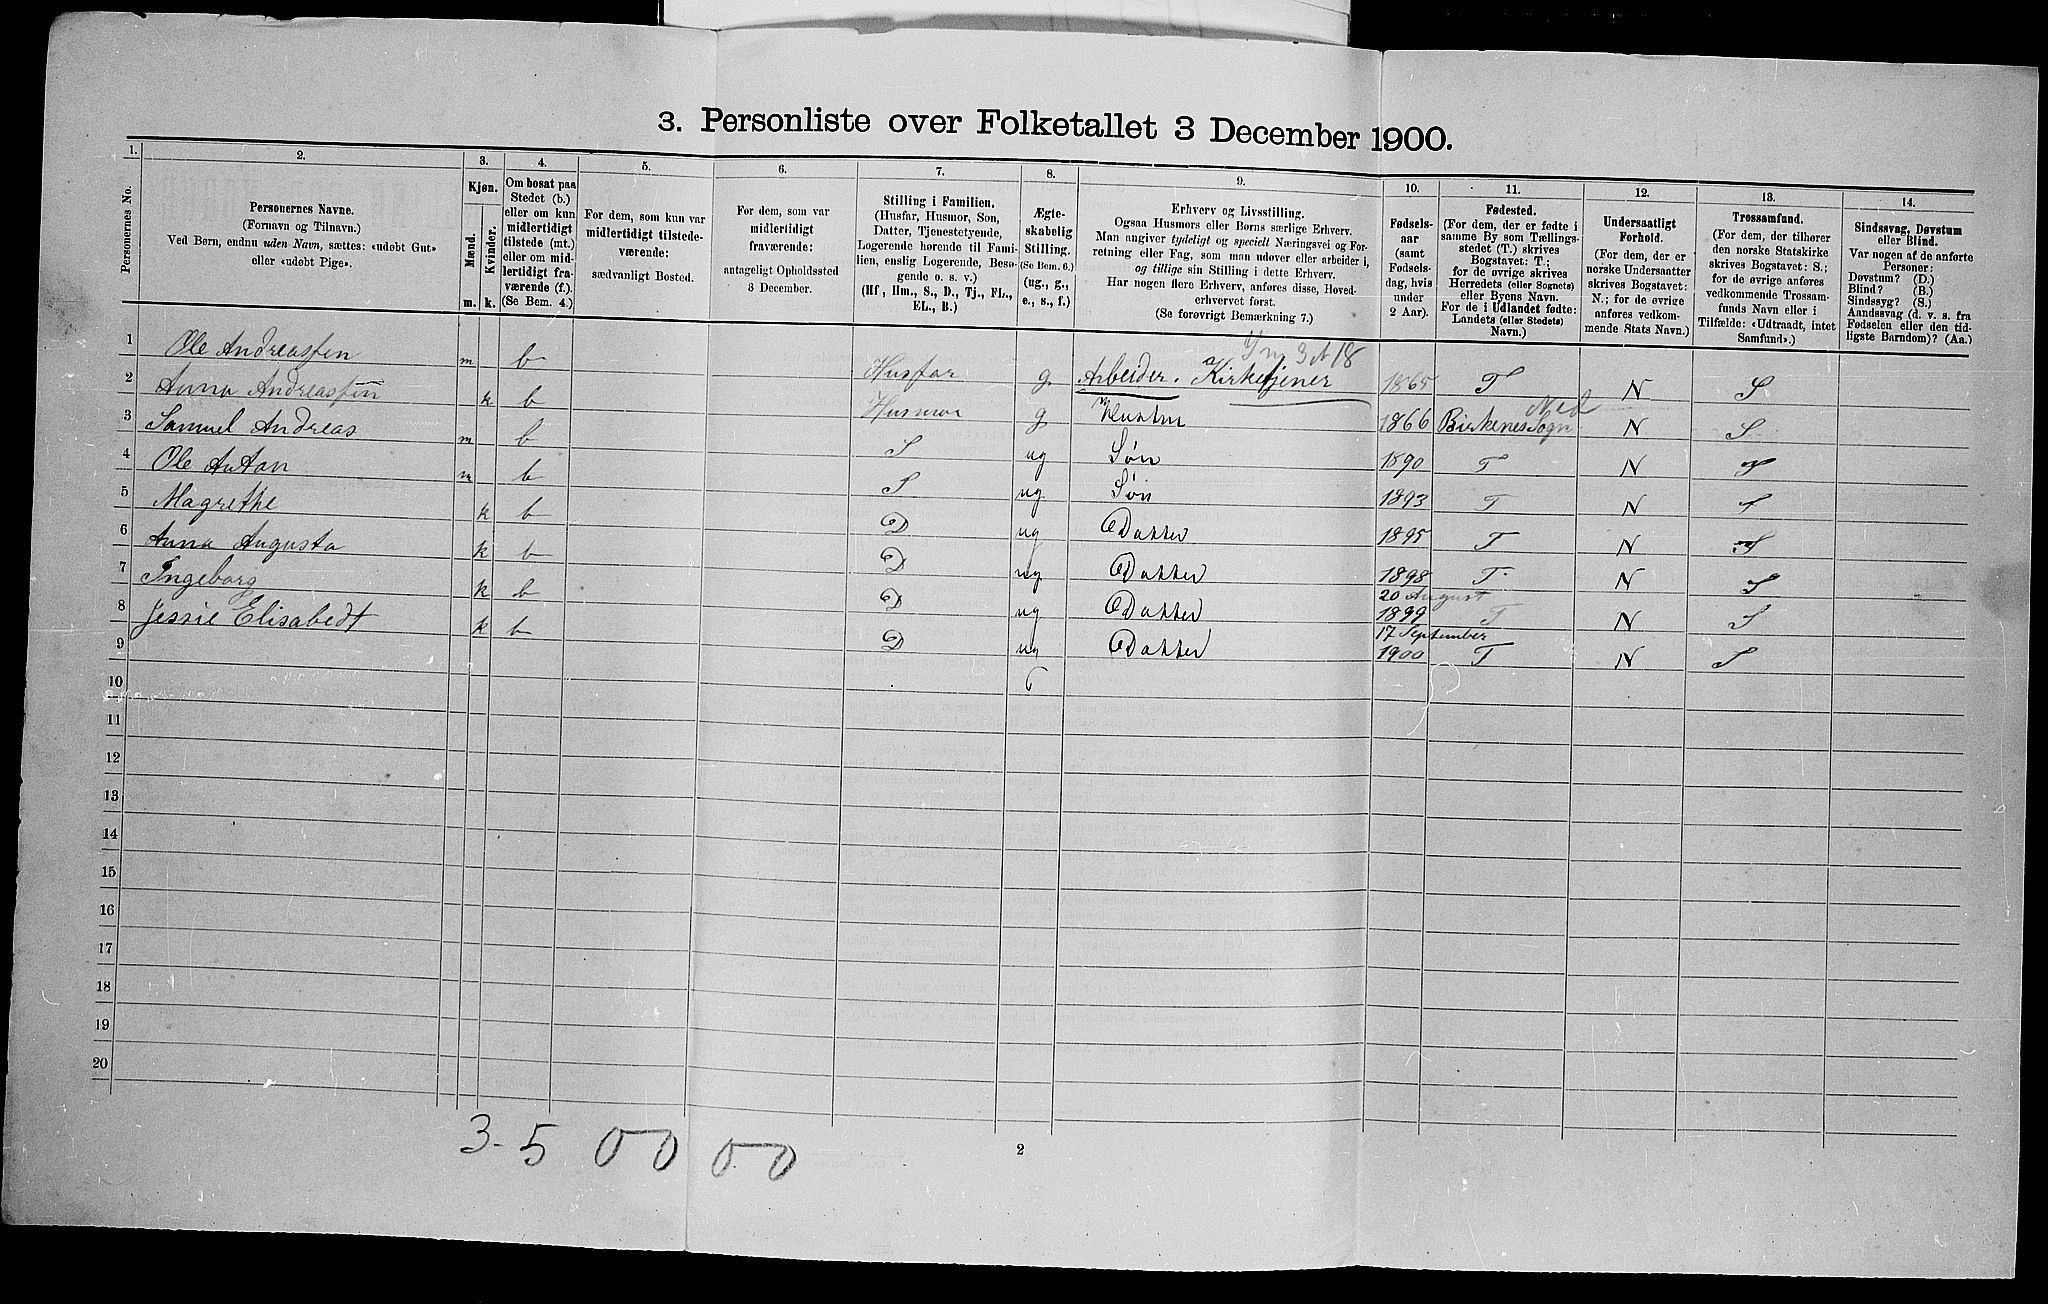 3. Personliste over Folketallet 3 December 1900.
1. 2. 3. 4. 5. 6. 7. 8. 9. 10. 11. 12. 13. 14.
Personernes No.
Personernes Navne.
(Fornavn og Tilnavn.)
Ved Børn, endnu uden Navn, sættes: «udøbt Gut»
eller «udøbt Pige».
Kjøn.
Mænd.
Kvinder.
m. k.
Om bosat paa
Stedet (b.)
eller om kun
midlertidigt
tilstede (mt.)
eller om mid-
lertidigt fra-
værende (f.).
(Se Bem. 4.)
For dem, som kun var
midlertidigt tilstede-
værende:
sædvanligt Bosted.
For dem, som var
midlertidigt
fraværende:
antageligt Opholdssted
3 December.
Stilling i Familien.
(Husfar, Husmor, Søn,
Datter, Tjenestetyende,
Logerende hørende til Fami-
lien, enslig Logerende, Besø-
gende o. s. v.)
(Hf, Hm., S., D., Tj., FL.,
EL., B.)
Ægte-
skabelig
Stilling.
(Se Bem. 6.)
(ug., g.,
e., s., f.)
Erhverv og Livsstilling.
Ogsaa Husmors eller Børns særlige Erhverv.
Man angiver tydeligt og specielt Næringsvei og For-
retning eller Fag, som man udøver eller arbeider i,
og tillige sin Stilling i dette Erhverv.
Har nogen flere Erhverv, anføres disse, Hoved-
erhvervet først.
(Se forøvrigt Bemærkning 7.)
Fødsels-
aar
(samt
Fødsels-
dag, hvis
under
2 Aar).
Fødested.
(For dem, der er fødte i
samme By som Tællings-
stedet (T.) skrives
Bogstavet: T.;
for de øvrige skrives
Herredets (eller Sognets)
eller Byens Navn.
For de i Udlandet fødte:
Landets (eller Stedets)
Navn.)
Undersaatligt
Forhold.
(For dem, der er
norske Undersaatter
skrives Bogstavet:
N.; for de øvrige
anføres vedkom-
mende Stats Navn.)
Trossamfund.
(For dem, der tilhører
den norske Statskirke
skrives Bogstavet: S.;
for de øvrige anføres
vedkommende Trossam-
funds Navn eller i
Tilfælde: «Udtraadt, intet
Samfund».)
Sindssvag, Døvstum
eller Blind.
Var nogen af de anførte
Personer:
Døvstum? (D.)
Blind? (B.)
Sindssyg? (S.)
Aandssvag (d. v. s. fra
Fødselen eller den tid-
ligste Barndom)? (Aa.)
1 Ole Andreassen m b Husfar g Arbeider. Kirketjener 1865 T N S
2 Anna Andreassen k b Husmor g Hustru 1866 Birkenes Sogn N S
Ned
3 Samuel Andreas m b S ug Søn 1890 T N S
4 Ole Anton m b S ug Søn 1893 T N S
5 Magrethe k b D ug Datter 1895 T N S
6 Anna Augusta k b D ug Datter 1898 T. N S
7 Ingeborg k b D ug Datter 20 August 1899 T N S
8 Jessie Elisabedt k b D ug Datter 17 September 1900 T N S
9
10
11
12
13
14
15
16
17
18
19
20
3-5 0-0 0-0
2